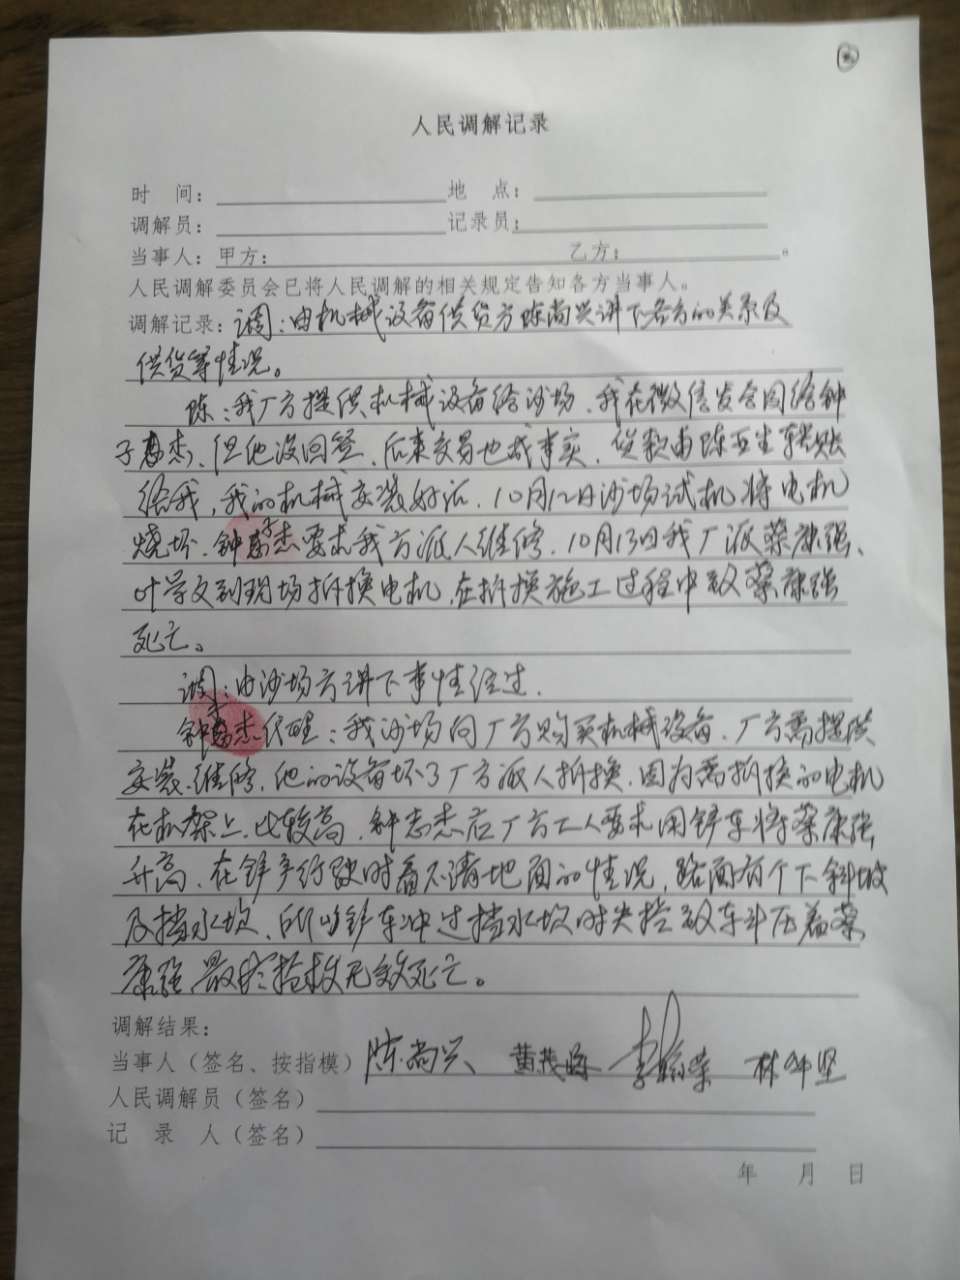 人民调解记录
时 间： 地 点：
调解员： 记录员：
当事人：甲方： 乙方： 。
人民调解委员会已将人民调解的相关规定告知各方当事人。
调解记录：调：由机械设备供货方陈尚兴讲下各方的关系及
供货等情况。
陈：我厂方提供机械设备给沙场，我在微信发合同给钟
子杰、但他没回签，后来交易也成事实，货款由陈亚生转账
给我，我的机械安装好后，10月12日沙场试机将电机
烧坏，钟杰要求我方派人维修，10月13日我厂派蔡康强、
叶学文到现场拆换电机，在拆换施工过程中致蔡康强
死亡。
调：由沙场方讲下事情经过．
钟杰代理：我沙场向厂方购买机械设备，厂方需提供
安装、维修，他的设备坏了厂方派人拆换，因为需拆换的电机
在机架上，比较高，钟志杰应厂方工人要求用铲车将蔡康强
升高、在铲车行驶时看不清地面的情况，路面有个下斜坡
及挡水坎、所以铲车冲过挡水坎时失控致车斗压着蔡
康强，最终抢救无效死亡。
调解结果：
当事人（签名、按指模） 陈尚兴 黄茂 李荣 林坚
人民调解员（签名）
记 录 人（签名）
年 月 日